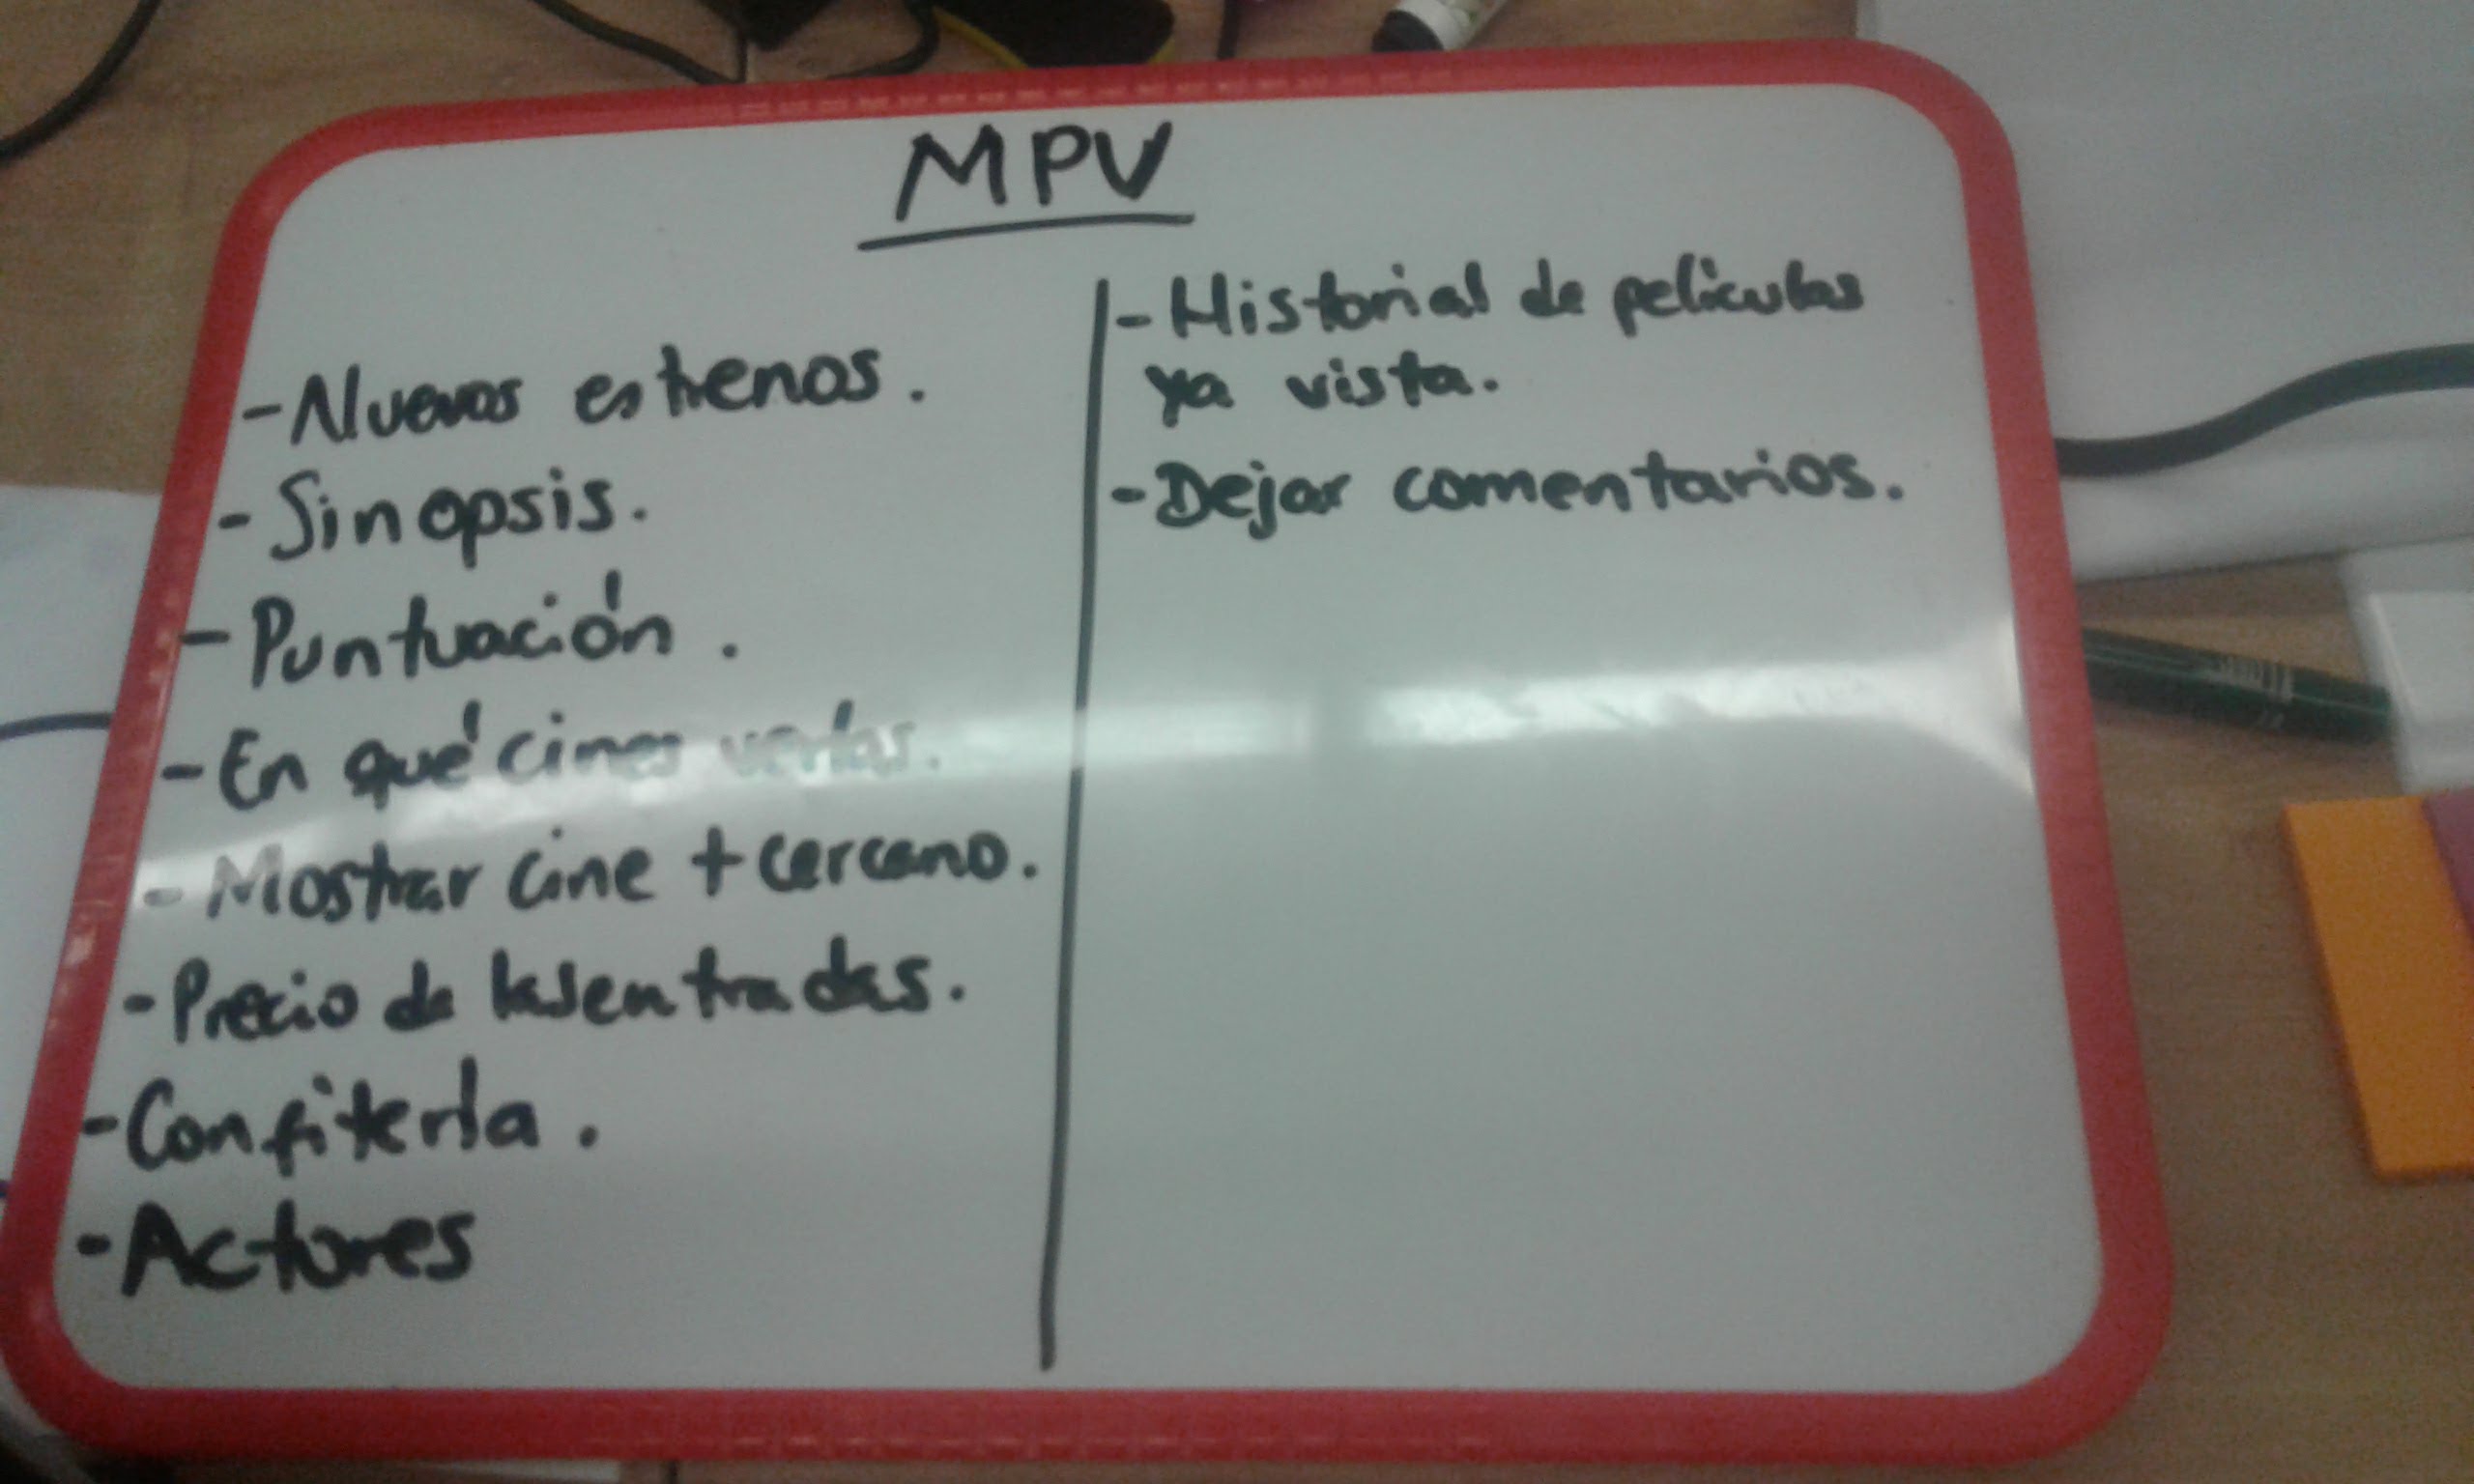 MPV
-Nuevos estrenos.
-Sinopsis.
-Puntuación.
-En qué cines verlas.
-Mostrar cine + cercano.
-Precio de las entradas.
-Confitería.
-Actores
-Historial de películas
ya vista.
-Dejar comentarios.